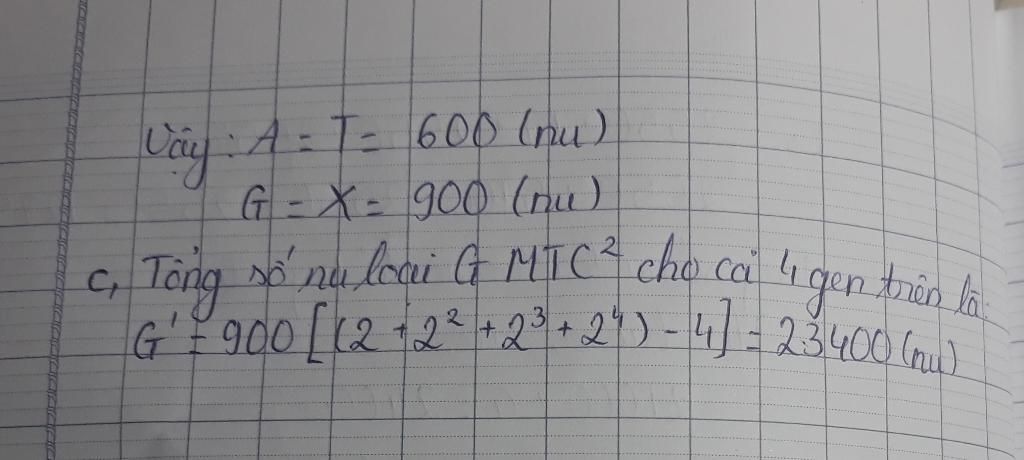 Vậy : A = T = 600 (nu)
G = X = 900 (nu)
c, Tổng số nu loại G MTC² cho cả 4 gen trên là:
G' = 900 [(2 + 2² + 2³ + 2⁴) - 4] = 23400 (nu)